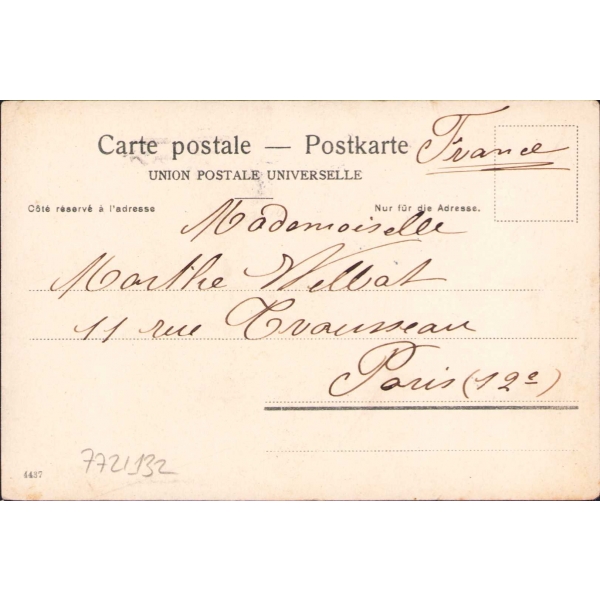 Carte postale — Postkarte France
UNION POSTALE UNIVERSELLE
Côté réservé à l'adresse Nur für die Adresse.
Mademoiselle
Marthe Welbat
11 rue Trousseau
Paris (12e)
7721132
4437